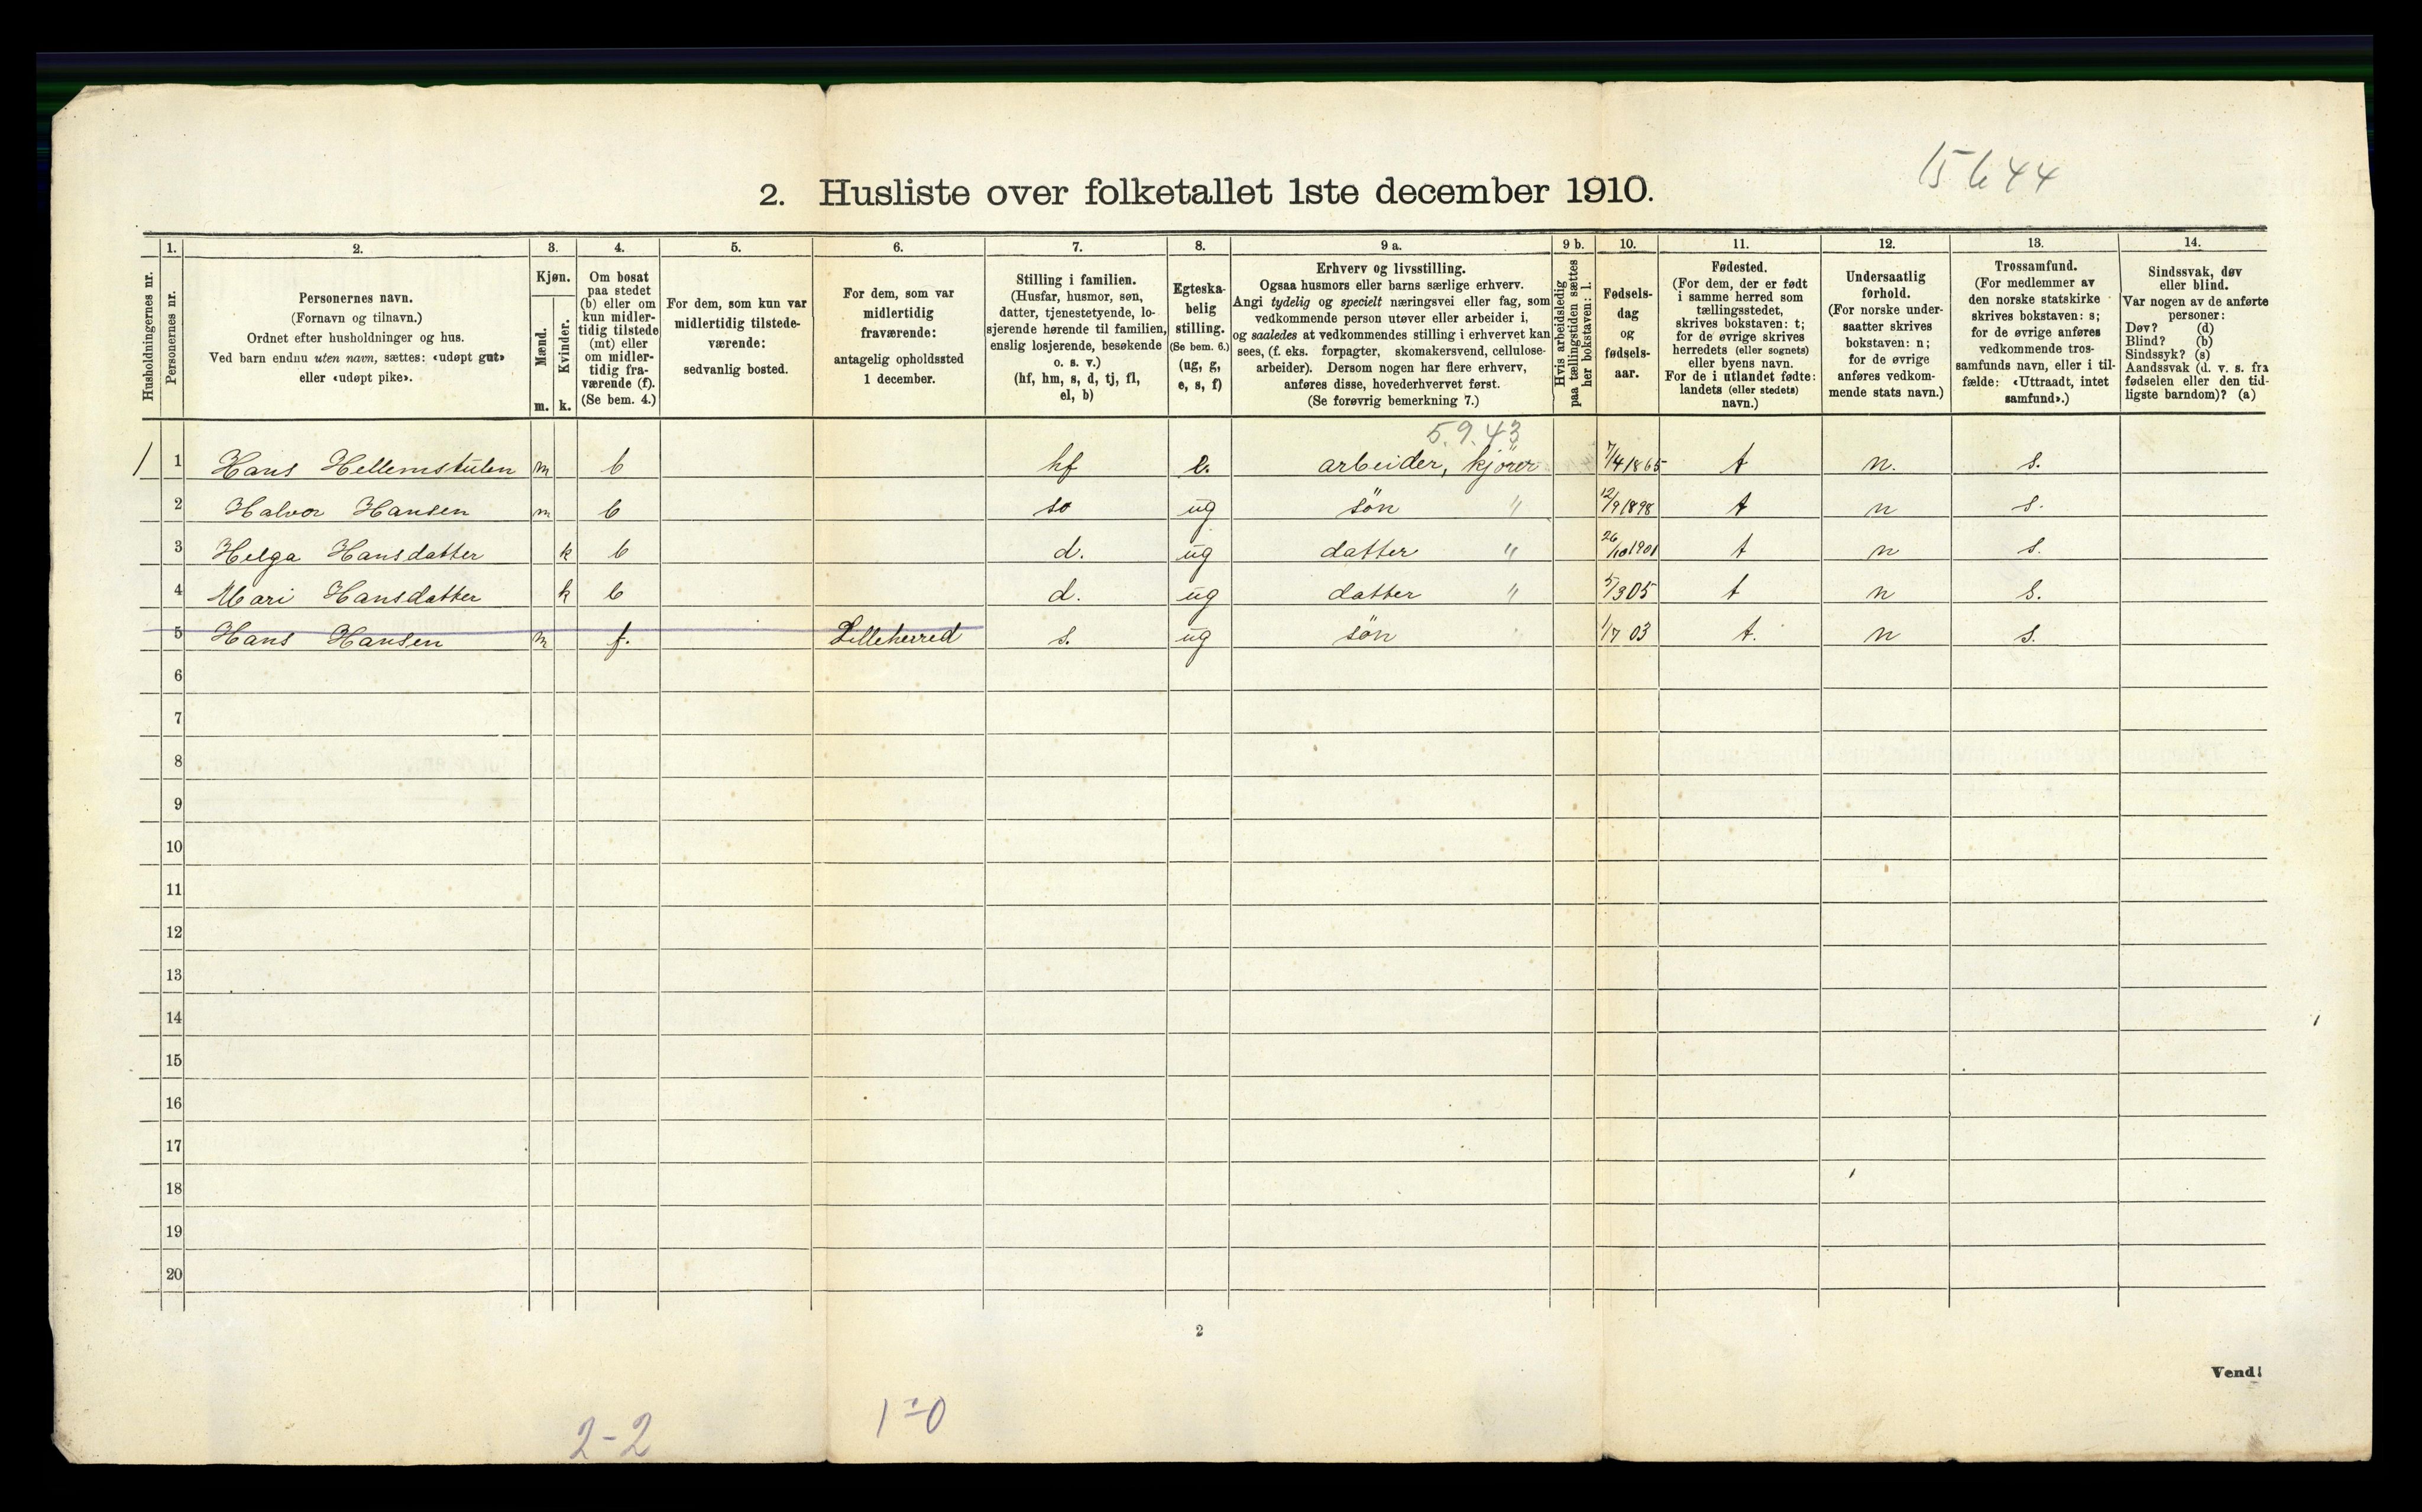 15644
2. Husliste over folketallet 1ste december 1910.
Husholdningernes nr.
1.
Personernes nr.
2.
Personernes navn.
(Fornavn og tilnavn.)
Ordnet efter husholdninger og hus.
Ved barn endnu uten navn, sættes: «udøpt gut»
eller «udøpt pike».
3.
Kjøn.
Mænd.
Kvinder.
m. k.
4.
Om bosat
paa stedet
(b) eller om
kun midler-
tidig tilstede
(mt) eller
om midler-
tidig fra-
værende (f).
(Se bem. 4.)
5.
For dem, som kun var
midlertidig tilstede-
værende:
sedvanlig bosted.
6.
For dem, som var
midlertidig
fraværende:
antagelig opholdssted
1 december.
7.
Stilling i familien.
(Husfar, husmor, søn,
datter, tjenestetyende, lo-
sjerende hørende til familien,
enslig losjerende, besøkende
o. s. v.)
(hf, hm, s, d, tj, fl,
el, b)
8.
Egteska-
belig
stilling.
(Se bem. 6.)
(ug, g,
e, s, f)
9 a.
Erhverv og livsstilling.
Ogsaa husmors eller barns særlige erhverv.
Angi tydelig og specielt næringsvei eller fag, som
vedkommende person utøver eller arbeider i,
og saaledes at vedkommendes stilling i erhvervet kan
sees, (f. eks. forpagter, skomakersvend, cellulose-
arbeider). Dersom nogen har flere erhverv,
anføres disse, hovederhvervet først.
(Se forøvrig bemerkning 7.)
9 b.
Hvis arbeidsledig
paa tællingstiden sættes
her bokstaven: l.
10.
Fødsels-
dag
og
fødsels-
aar.
11.
Fødested.
(For dem, der er født
i samme herred som
tællingsstedet,
skrives bokstaven: t;
for de øvrige skrives
herredets (eller sognets)
eller byens navn.
For de i utlandet fødte:
landets (eller stedets)
navn.)
12.
Undersaatlig
forhold.
(For norske under-
saatter skrives
bokstaven: n;
for de øvrige
anføres vedkom-
mende stats navn.)
13.
Trossamfund.
(For medlemmer av
den norske statskirke
skrives bokstaven: s;
for de øvrige anføres
vedkommende tros-
samfunds navn, eller i til-
fælde: «Uttraadt, intet
samfund».)
14.
Sindssvak, døv
eller blind.
Var nogen av de anførte
personer:
Døv? (d)
Blind? (b)
Sindssyk? (s)
Aandssvak (d. v. s. fra
fødselen eller den tid-
ligste barndom)? (a)
5.9.43
1 1 Hans Hellemstulen m b hf e. arbeider, kjörer 7/4 1865 t n. s.
2 Halvor Hansen m b sø ug sön " 12/9 1898 t n s.
3 Helga Hansdatter k b d. ug datter " 26/10 1901 t n s.
4 Mari Hansdatter k b d. ug datter " 5/3 05 t n s.
5 Hans Hansen m f. Lilleherred s. ug sön 1/7 03 t. n s.
6
7
8
9
10
11
12
13
14
15
16
17
18
19
20
2
Vend!
2-2
1-0